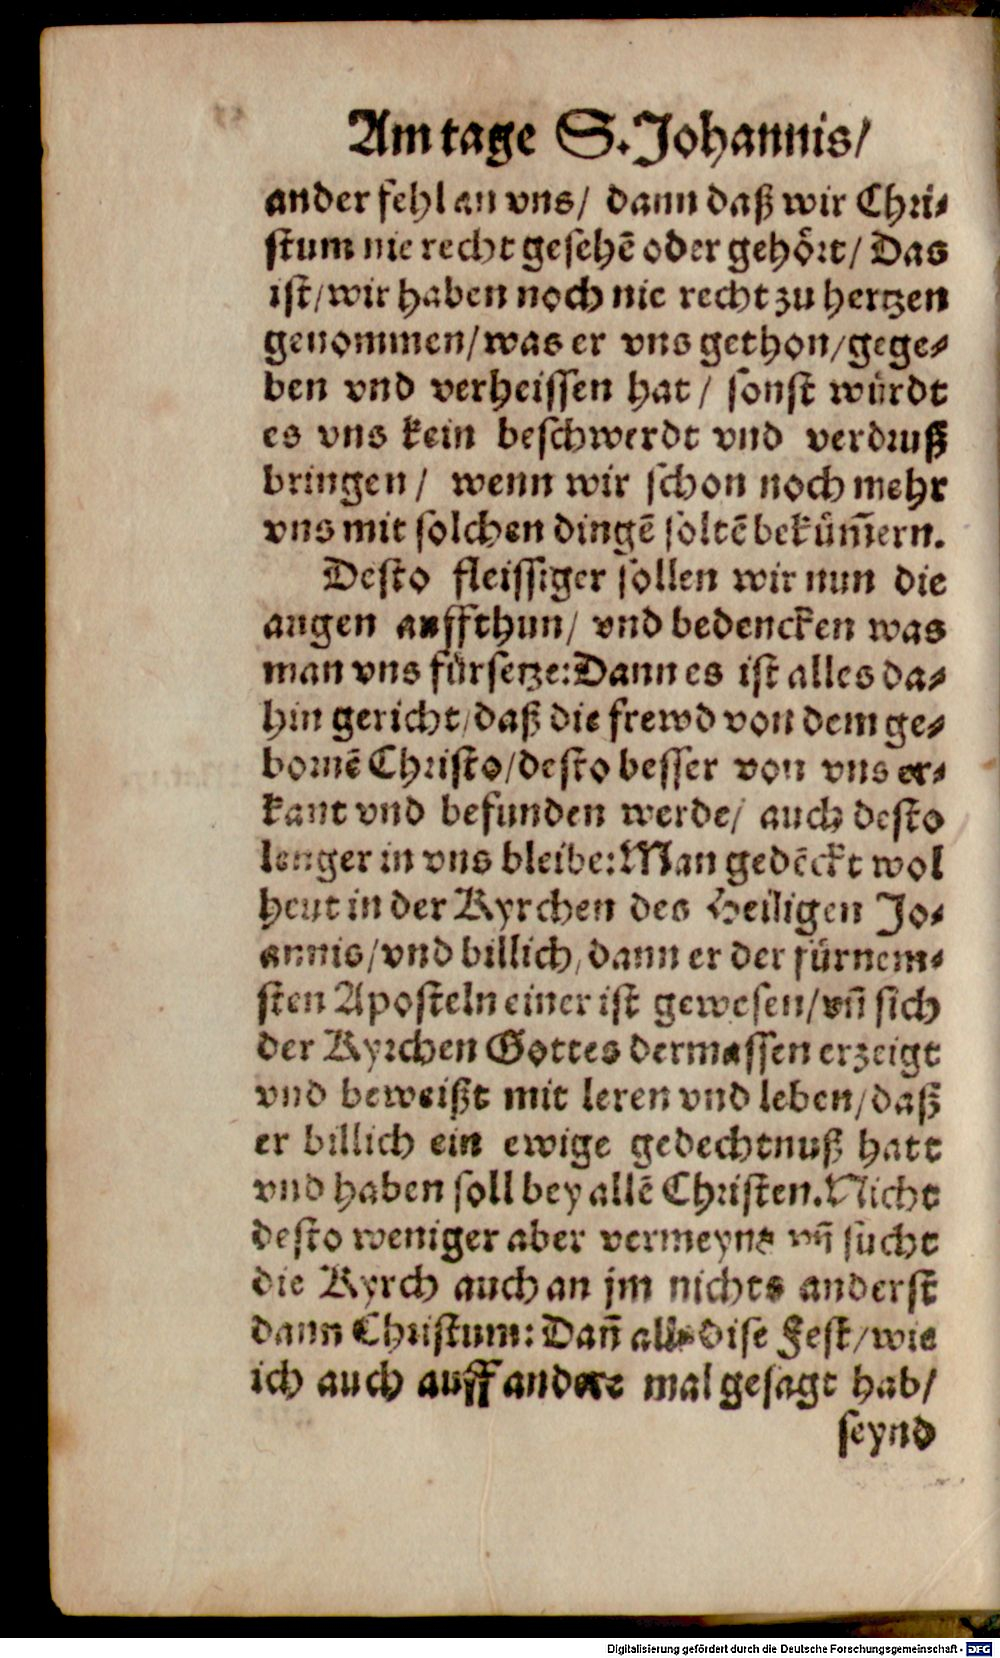 Am tage S. Johannis/
ander fehl an vns/ dann daß wir Chri-
stum nie recht gesehē oder gehört/ Das
ist/ wir haben noch nie recht zu hertzen
genommen/ was er vns gethon/ gege-
ben vnd verheissen hat/ sonst würdt
es vns kein beschwerdt vnd verdruß
bringen/ wenn wir schon noch mehr
vns mit solchen dingē soltē bekūm̄ern.
Desto fleissiger sollen wir nun die
augen auffthun/ vnd bedencken was
man vns fürsetze: Dann es ist alles da-
hin gericht/ daß die frewd von dem ge-
bornē Christo/ desto besser von vns er-
kant vnd befunden werde/ auch desto
lenger in vns bleibe: Man gedēckt wol
heut in der Kyrchen des Heiligen Jo-
annis/ vnd billich/ dann er der fürnem-
sten Aposteln einer ist gewesen/ vn̄ sich
der Kyrchen Gottes dermassen erzeigt
vnd beweißt mit leren vnd leben/ daß
er billich ein ewige gedechtnuß hatt
vnd haben soll bey allē Christen. Nicht
desto weniger aber vermeynt vn̄ sucht
die Kyrch auch an jm nichts anderst
dann Christum: Dan̄ alle dise Fest/ wie
ich auch auff andere mal gesagt hab/
seynd
Digitalisierung gefördert durch die Deutsche Forschungsgemeinschaft - DFG